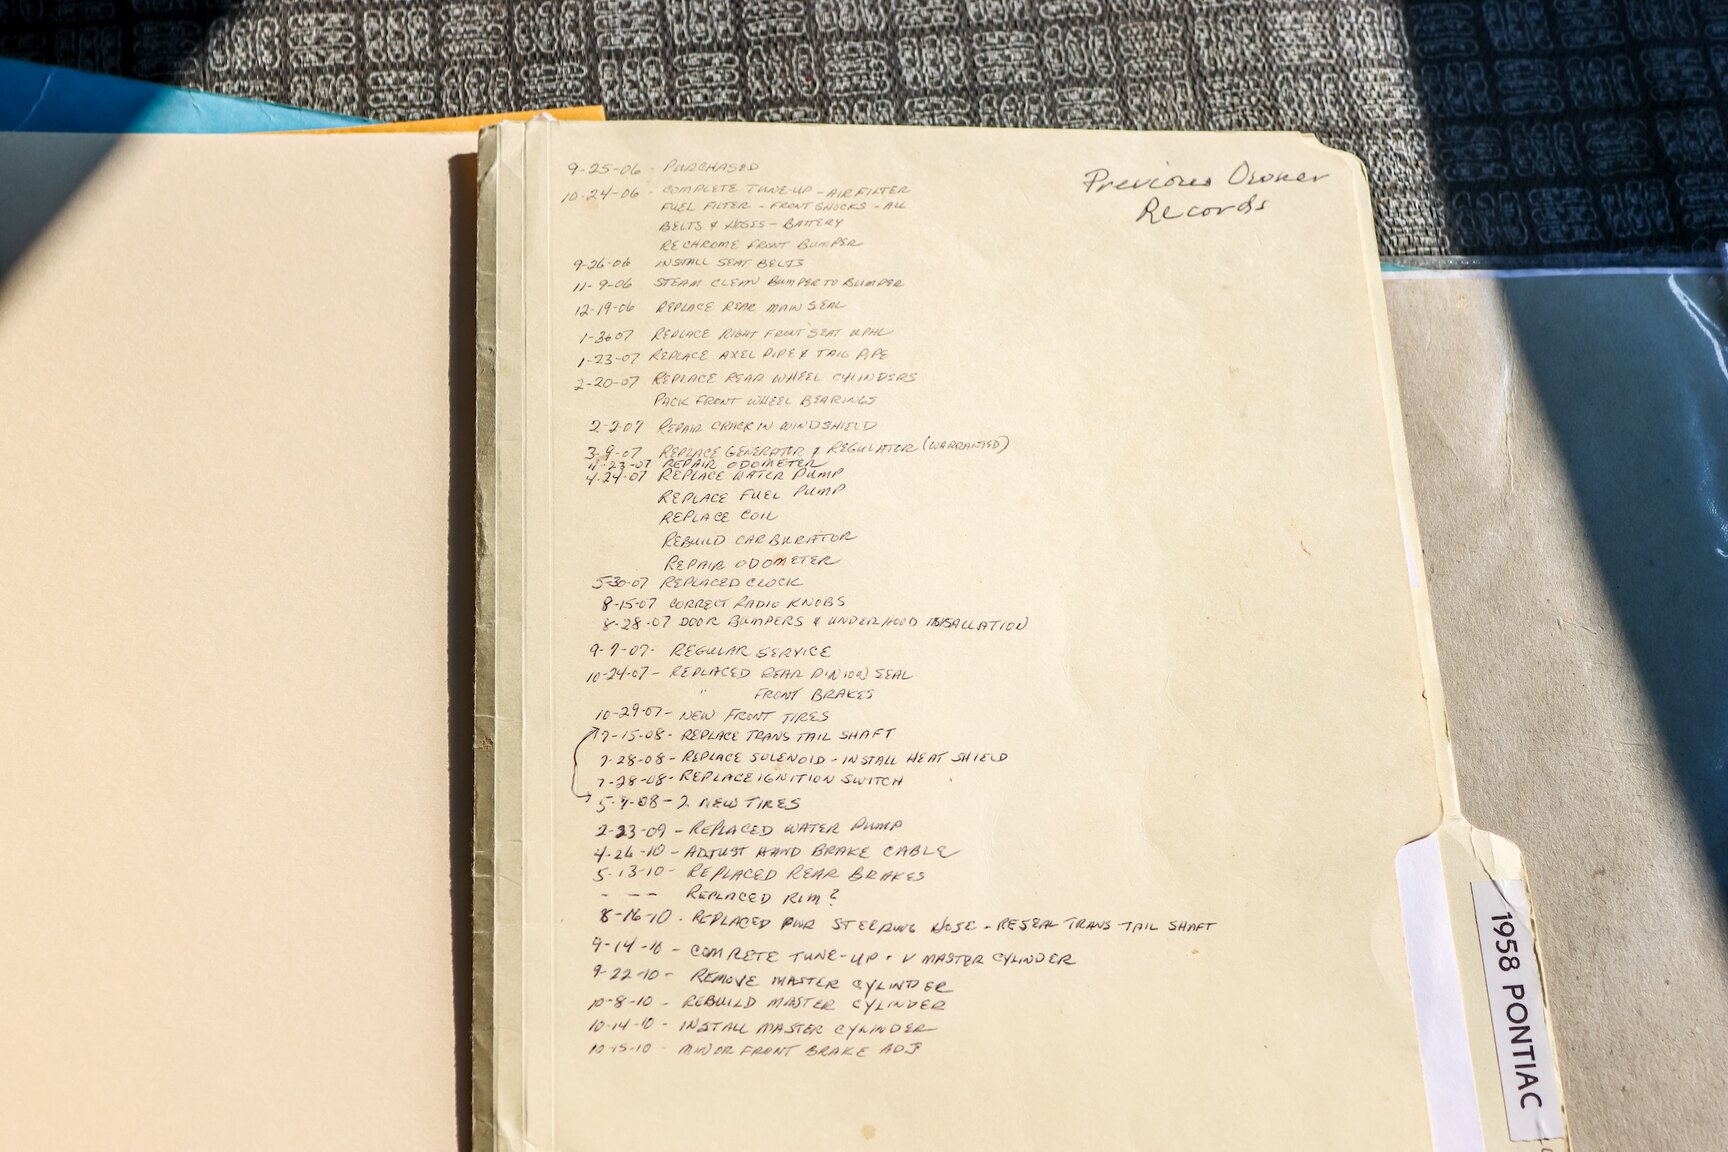 Previous Owner
Records
9-25-06 - PURCHASED
10-24-06 - COMPLETE TUNE-UP - AIR FILTER
FUEL FILTER - FRONT SHOCKS - ALL
BELTS & HOSES - BATTERY
RECHROME FRONT BUMPER
9-26-06 INSTALL SEAT BELTS
11-9-06 STEAM CLEAN BUMPER TO BUMPER
12-19-06 REPLACE REAR MAIN SEAL
1-3-07 REPLACE RIGHT FRONT SEAT UPHL
1-23-07 REPLACE AXEL PIPE & TAIL PIPE
2-20-07 REPLACE REAR WHEEL CYLINDERS
PACK FRONT WHEEL BEARINGS
2-2-07 REPAIR CRACK IN WINDSHIELD
3-9-07 REPLACE GENERATOR & REGULATOR (WARRANTED)
4-23-07 REPAIR ODOMETER
4-24-07 REPLACE WATER PUMP
REPLACE FUEL PUMP
REPLACE COIL
REBUILD CARBURATOR
REPAIR ODOMETER
5-30-07 REPLACED CLOCK
8-15-07 CORRECT RADIO KNOBS
8-28-07 DOOR BUMPERS & UNDERHOOD
9-7-07 - REGULAR SERVICE
10-24-07 - REPLACED REAR PINION SEAL
" FRONT BRAKES
10-29-07 - NEW FRONT TIRES
7-15-08 - REPLACE TRANS TAIL SHAFT
7-28-08 - REPLACE SOLENOID - INSTALL HEAT SHIELD
7-28-08 - REPLACE IGNITION SWITCH
5-7-08 - 2 NEW TIRES
2-23-09 - REPLACED WATER PUMP
4-26-10 - ADJUST HAND BRAKE CABLE
5-13-10 - REPLACED REAR BRAKES
- -- REPLACED RIM?
8-16-10 - REPLACED PWR STEERING HOSE - RESEAL TRANS TAIL SHAFT
9-14-10 - COMPLETE TUNE-UP - MASTER CYLINDER
9-22-10 - REMOVE MASTER CYLINDER
10-8-10 - REBUILD MASTER CYLINDER
10-14-10 - INSTALL MASTER CYLINDER
10-15-10 - MINOR FRONT BRAKE ADJ
1958 PONTIAC